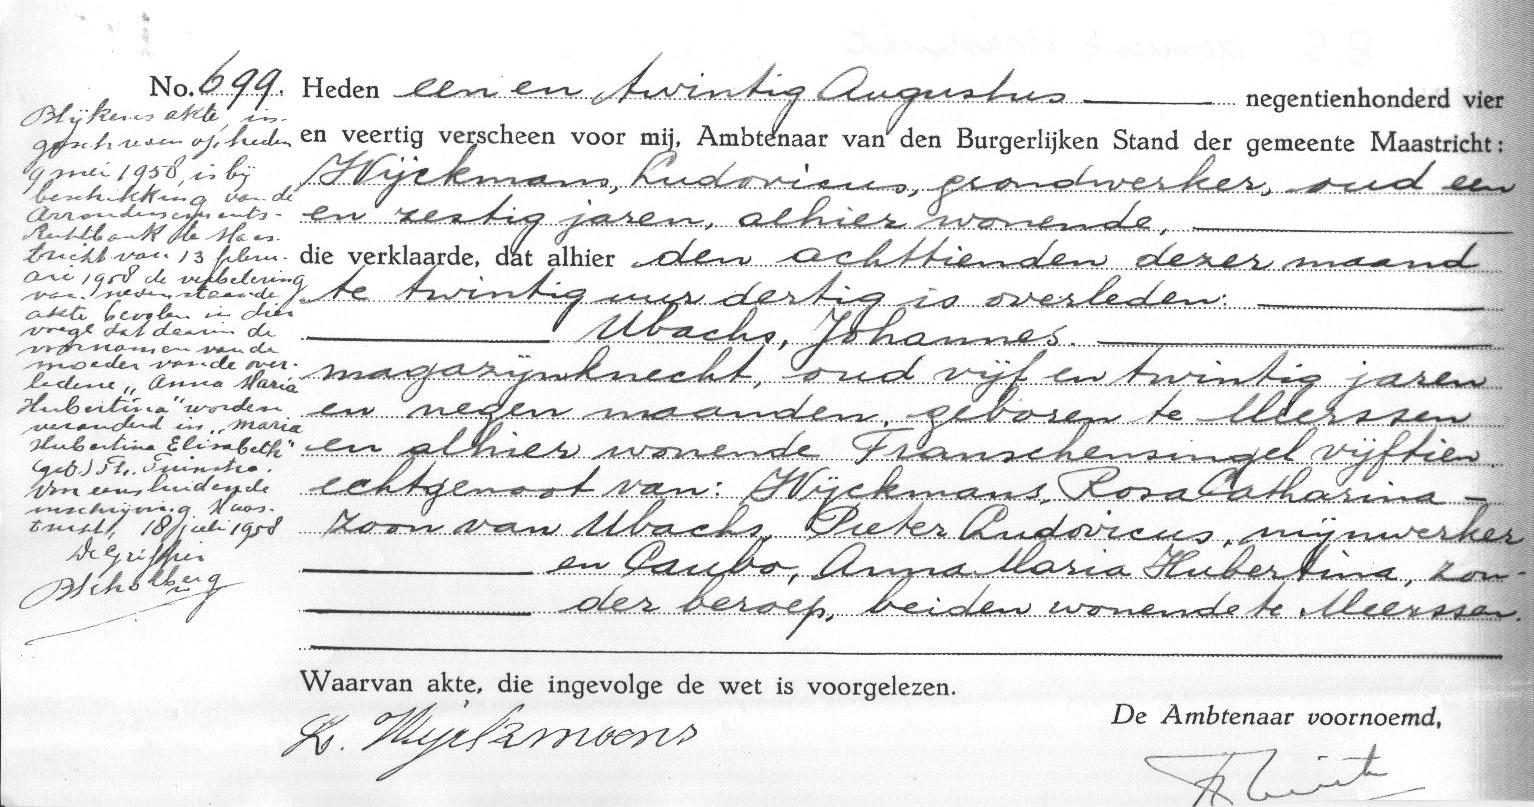 No. 699.
Blijkens akte, in-
geschreven op heden
9 mei 1958, is bij
beschikking van de
Arrondissements-
Rechtbank te Maas-
tricht van 13 febru-
ari 1958 de verbetering
van nevenstaande
akte bevolen in dier
voege dat daarin de
voornamen van de
moeder van de over-
ledene "Anna Maria
Hubertina" worden
veranderd in "Maria
Hubertina Elisabeth"
get.) Th. Tuinstra.
Voor eensluidende
inschrijving Maas-
tricht, 18 juli 1958
De Griffier
Heden een en twintig Augustus negentienhonderd vier
en veertig verscheen voor mij, Ambtenaar van den Burgerlijken Stand der gemeente Maastricht:
Wijckmans, Ludovicus, grondwerker, oud een
en zestig jaren, alhier wonende,
die verklaarde, dat alhier den achttienden dezer maand
te twintig uur dertig is overleden:
Ubachs, Johannes.
magazijnknecht, oud vijf en twintig jaren
en negen maanden, geboren te Meerssen
en alhier wonende Franschensingel vijftien,
echtgenoot van: Wijckmans, Rosa Catharina -
zoon van Ubachs, Pieter Ludovicus, mijnwerker
en Caubo, Anna Maria Hubertina, zon-
der beroep, beiden wonende te Meerssen.
Waarvan akte, die ingevolge de wet is voorgelezen.
De Ambtenaar voornoemd,
L. Wijckmans